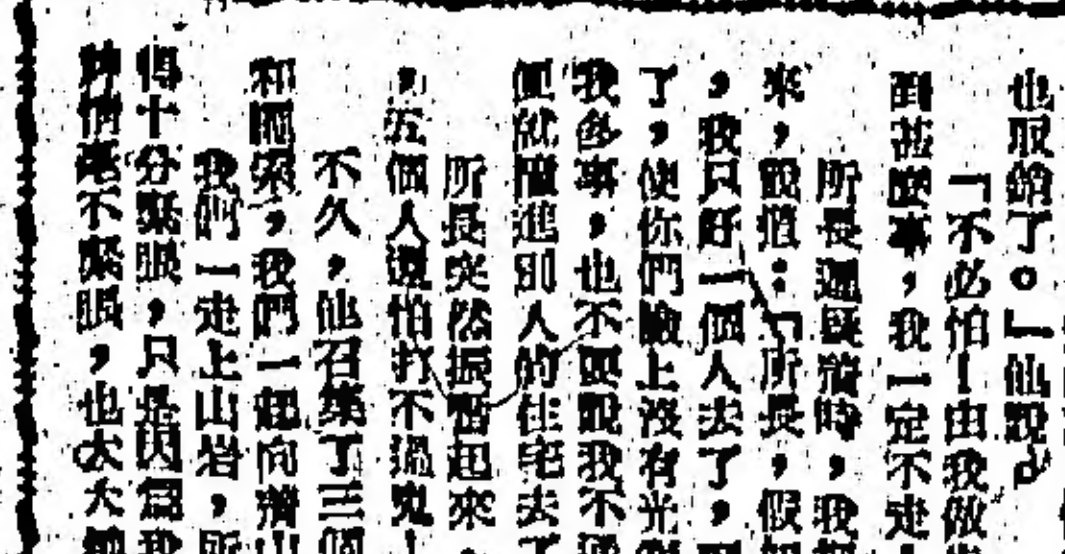 也取銷了。」他說。
「不必怕!由我做
甚麼事,我一定不走
所長遲疑
來,說道:「所長,假
,我只好一個人去了,
了,使你們臉上沒有光
我多事,也不要說我不
便就闖進別人的住宅去了
所長突然振奮起來,
,五個人還怕打不過鬼!
不久,他召集了三個
和圈索,我們一起向
我們一走上山岩,所
得十分緊張,只是因為我
神情毫不緊張,也大大